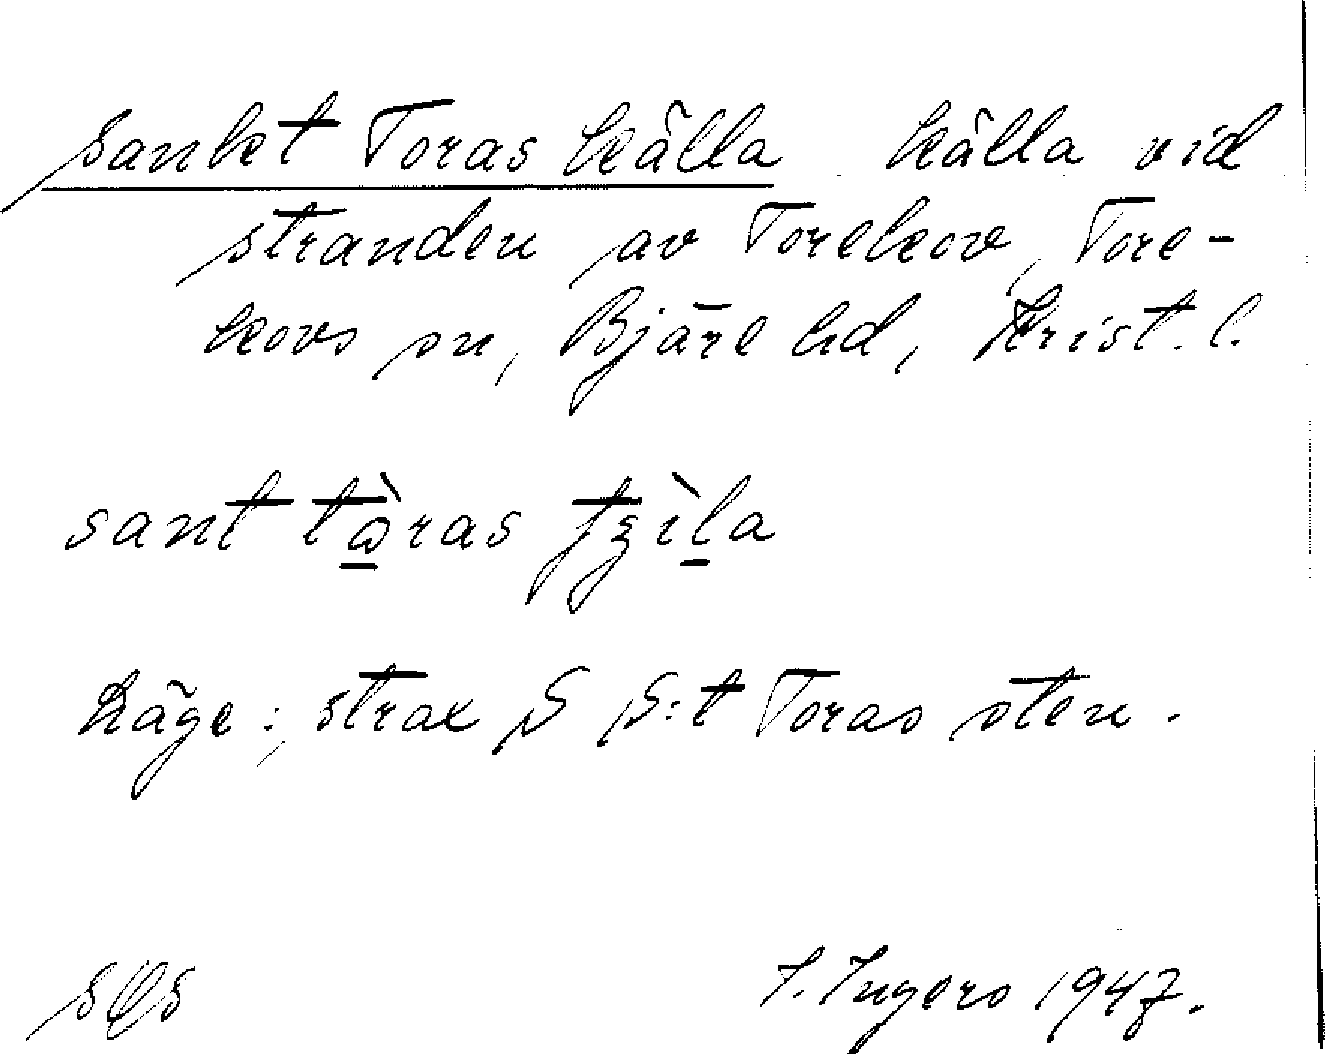 Sankt Toras källa källa vid
stranden av Torekov, Tore-
kovs sn, Bjäre hd, Krist. l.
sant tὼ̱ras tʒìḻa
Läge: strax S S:t Toras sten.
I. Ingers 1947.